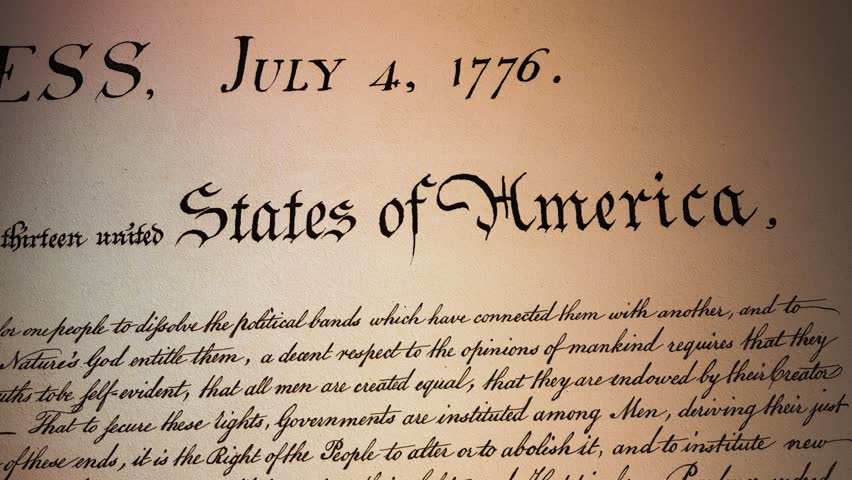 ESS, JULY 4, 1776.
thirteen united States of America,
for one people to dissolve the political bands which have connected them with another, and to
Nature's God entitle them, a decent respect to the opinions of mankind requires that they
uths to be self-evident, that all men are created equal, that they are endowed by their Creator
— That to secure these rights, Governments are instituted among Men, deriving their just
of these ends, it is the Right of the People to alter or to abolish it, and to institute new